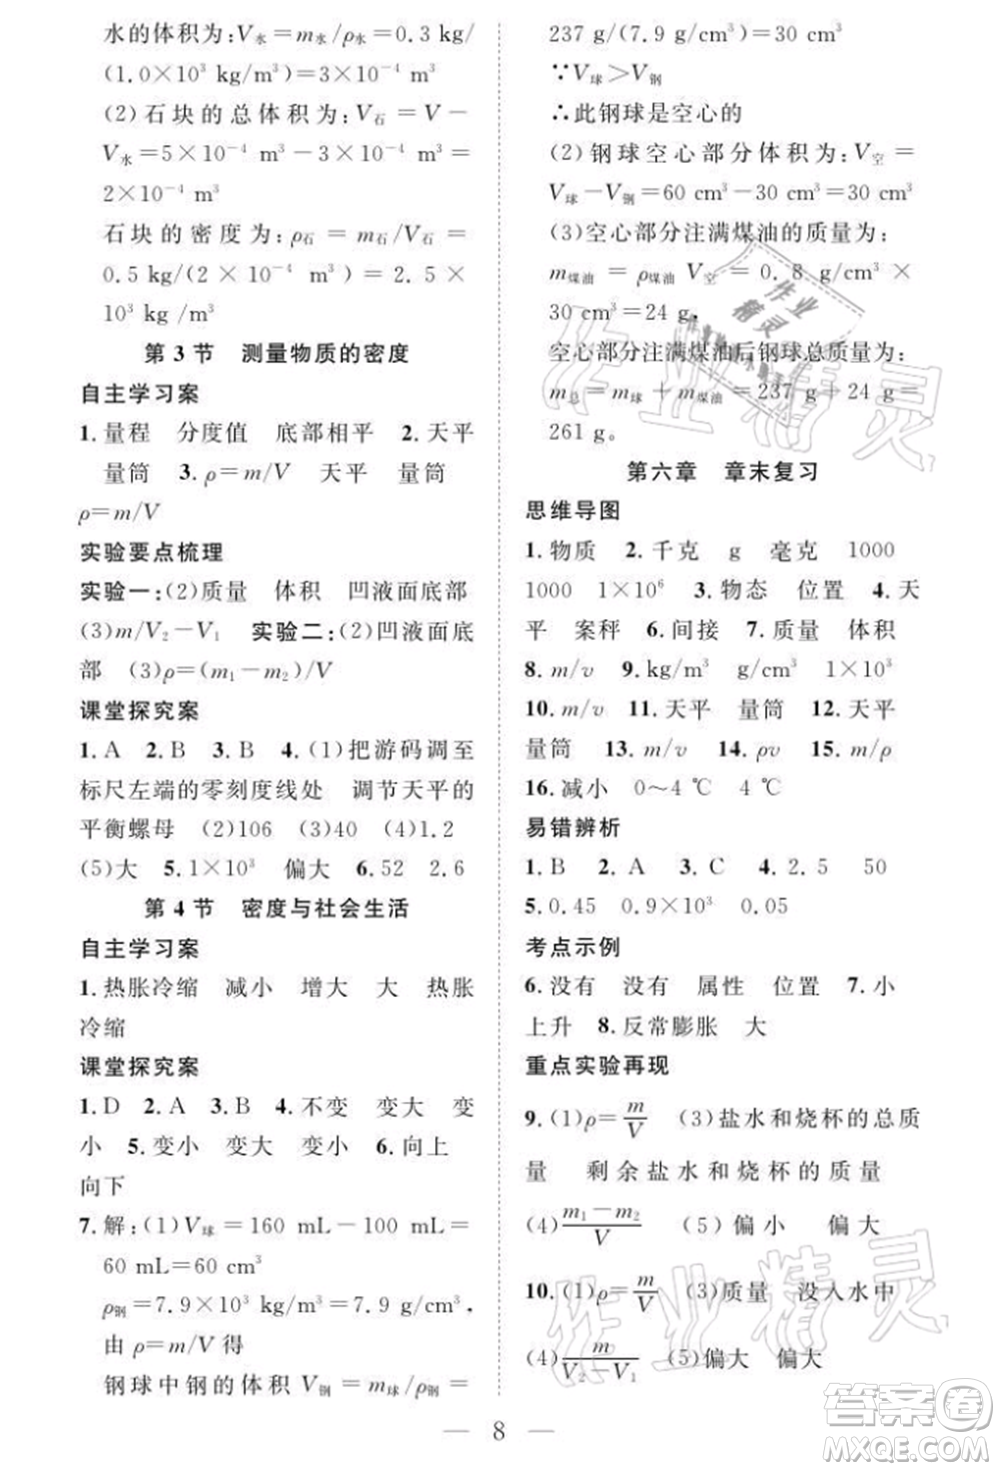 水的体积为:V水=m水/ρ水=0.3 kg/
(1.0×10³ kg/m³)=3×10⁻⁴ m³
(2)石块的总体积为:V石=V-
V水=5×10⁻⁴ m³-3×10⁻⁴ m³=
2×10⁻⁴ m³
石块的密度为:ρ石=m石/V石=
0.5 kg/(2×10⁻⁴ m³)=2.5×
10³ kg /m³
第3节 测量物质的密度
自主学习案
1.量程 分度值 底部相平 2.天平
量筒 3.ρ=m/V 天平 量筒
ρ=m/V
实验要点梳理
实验一:(2)质量 体积 凹液面底部
(3)m/V₂-V₁ 实验二:(2)凹液面底
部 (3)ρ=(m₁-m₂)/V
课堂探究案
1.A 2.B 3.B 4.(1)把游码调至
标尺左端的零刻度线处 调节天平的
平衡螺母 (2)106 (3)40 (4)1.2
(5)大 5.1×10³ 偏大 6.52 2.6
第4节 密度与社会生活
自主学习案
1.热胀冷缩 减小 增大 大 热胀
冷缩
课堂探究案
1.D 2.A 3.B 4.不变 变大 变
小 5.变小 变大 变小 6.向上
向下
7.解:(1)V球=160 mL-100 mL=
60 mL=60 cm³
ρ钢=7.9×10³ kg/m³=7.9 g/cm³,
由 ρ=m/V 得
钢球中钢的体积 V钢=m球/ρ钢=
237 g/(7.9 g/cm³)=30 cm³
∵V球>V钢
∴此钢球是空心的
(2)钢球空心部分体积为:V空=
V球-V钢=60 cm³-30 cm³=30 cm³
(3)空心部分注满煤油的质量为:
m煤油=ρ煤油 V空=0.8 g/cm³×
30 cm³=24 g,
空心部分注满煤油后钢球总质量为:
m总=m球+m煤油=237 g+24 g=
261 g。
第六章 章末复习
思维导图
1.物质 2.千克 g 毫克 1000
1000 1×10⁶ 3.物态 位置 4.天
平 案秤 6.间接 7.质量 体积
8.m/v 9.kg/m³ g/cm³ 1×10³
10.m/v 11.天平 量筒 12.天平
量筒 13.m/v 14.ρv 15.m/ρ
16.减小 0~4 ℃ 4 ℃
易错辨析
1.B 2.A 3.C 4.2.5 50
5.0.45 0.9×10³ 0.05
考点示例
6.没有 没有 属性 位置 7.小
上升 8.反常膨胀 大
重点实验再现
9.(1)ρ=m/V (3)盐水和烧杯的总质
量 剩余盐水和烧杯的质量
(4)(m₁-m₂)/V (5)偏小 偏大
10.(1)ρ=m/V (3)质量 没入水中
(4)m/(V₂-V₁) (5)偏大 偏大
— 8 —
作业精灵
作业精灵
作业精灵
答案圈
MXQE.COM